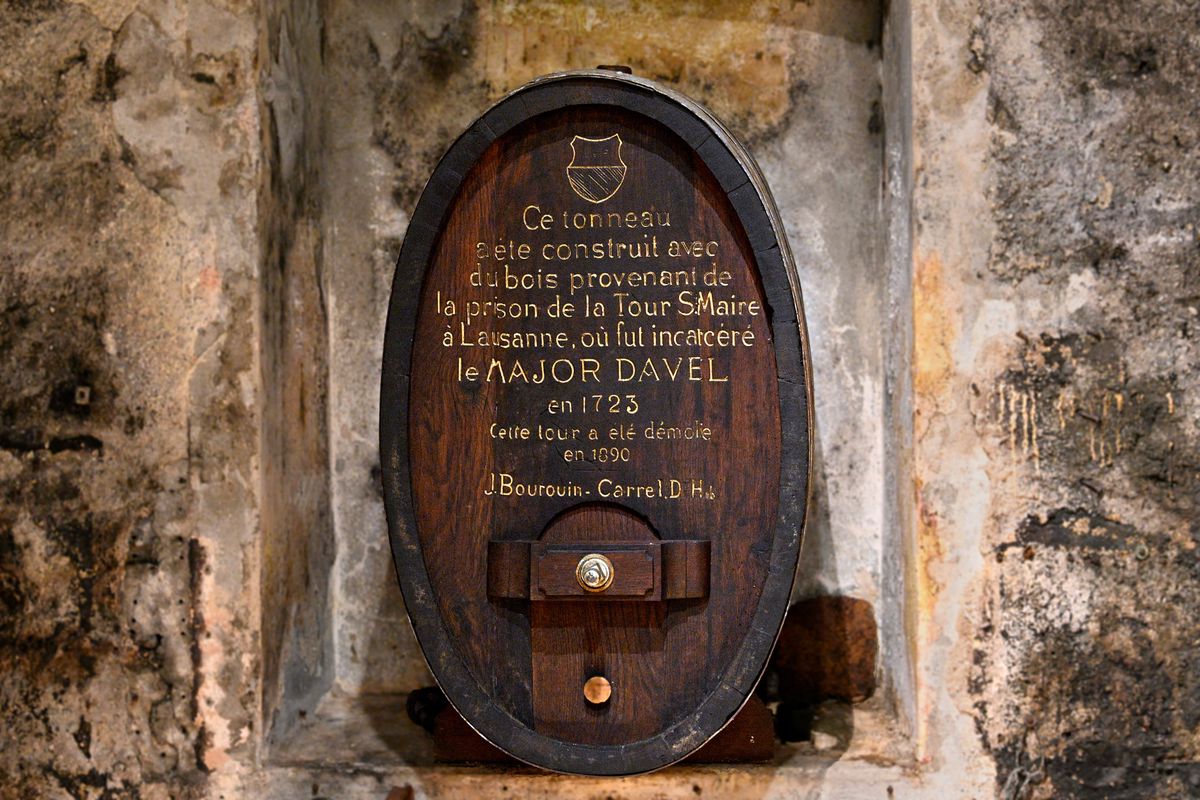 Ce tonneau
a été construit avec
du bois provenant de
la prison de la Tour St Maire
à Lausanne, où fut incarcéré
le MAJOR DAVEL
en 1723
Cette tour a été démolie
en 1890
J. Bourouin - Carrel. D